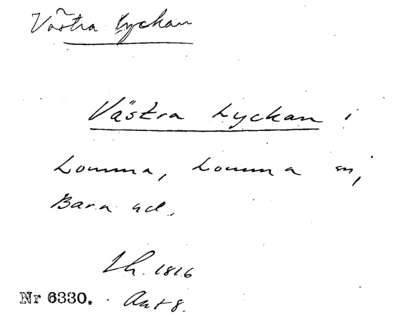 Västra Lyckan
Västra Lyckan i
Lomma, Lomma sn,
Bara hd.
Lh. 1816
Nr 6330. Akt 8.